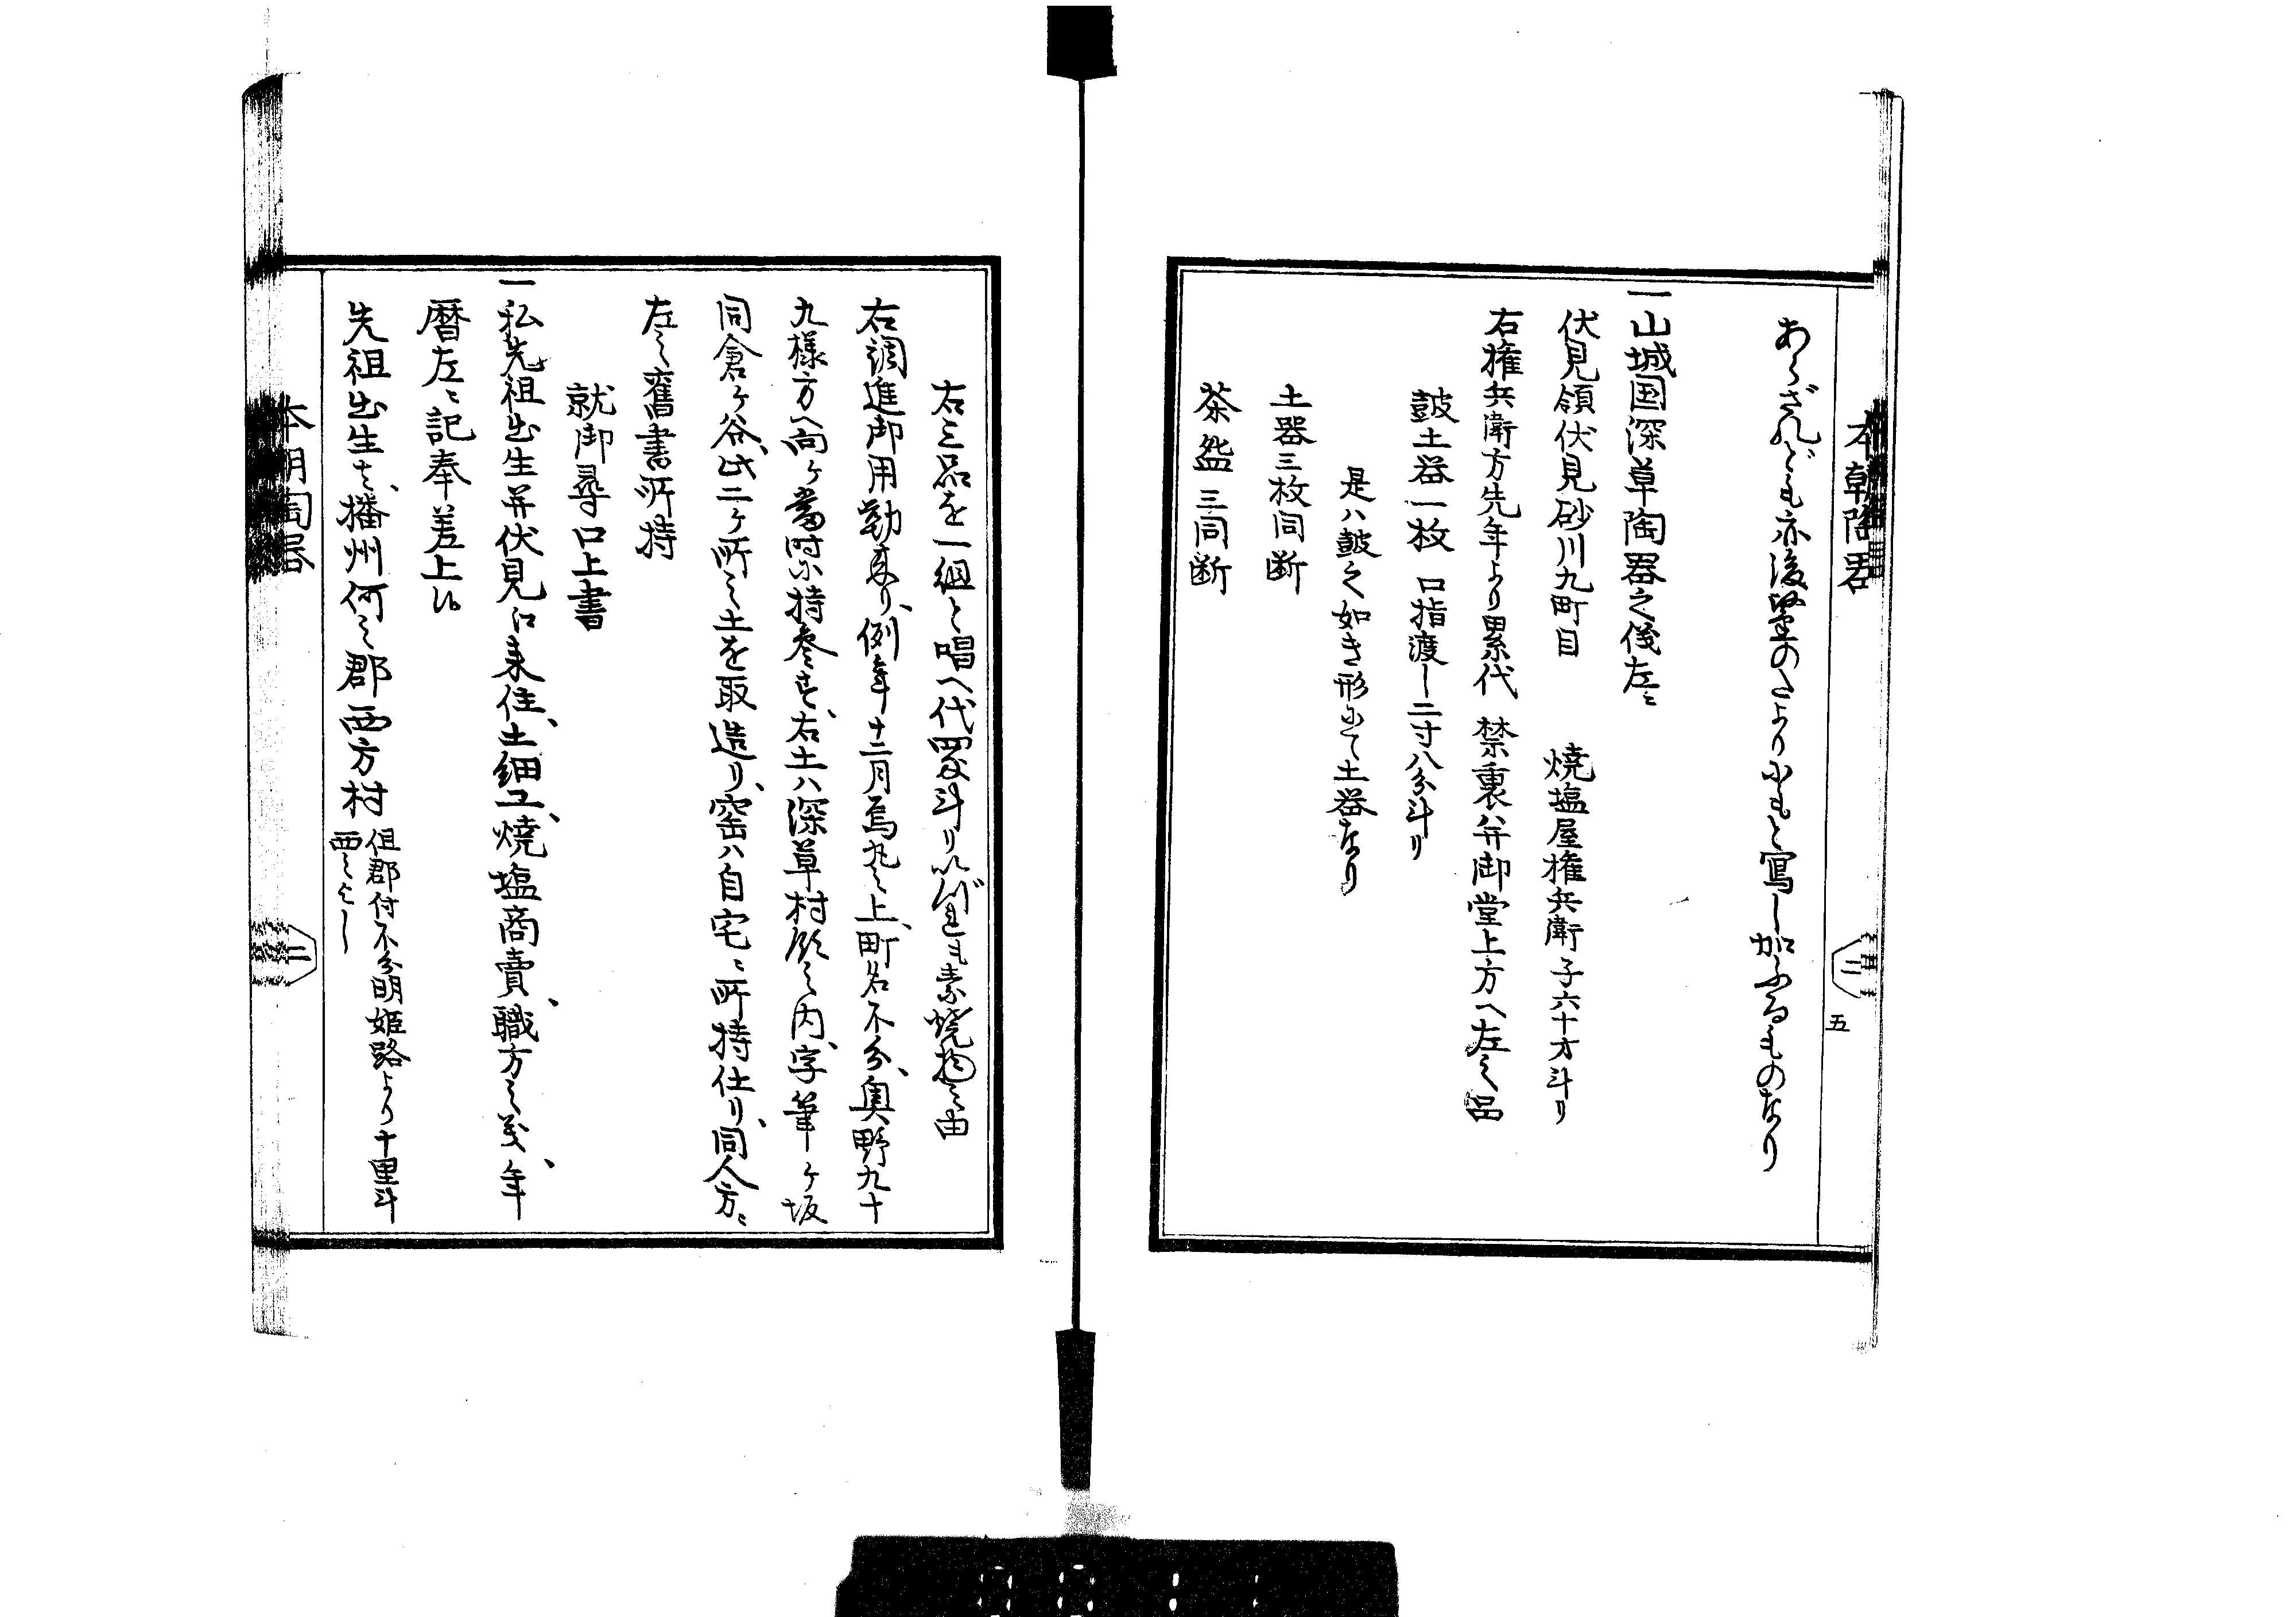 本朝陶器
五
あらざれども亦後鑒のたよりにもと寫し加ふるものなり
一山城国深草陶器之儀左ニ
伏見領伏見砂川九町目　焼塩屋権兵衛子六十才斗リ
右権兵衛方先年より累代　禁裏并御堂上方へ左之品
皷土器一枚　口指渡し二寸八分斗リ
是ハ皷之如き形にて土器なり
土器三枚同断
茶盌三同断
右三品を一組と唱へ代四匁斗リいづれも素燒物之由
右調進御用勤来り、例年十二月烏丸之上、町名不分、奥野九十
九様方へ向ケ當時は持参す、右土ハ深草村領之内、字筆ケ坂
同倉ケ谷、此二ケ所之土を取造リ、窑ハ自宅ニ所持仕リ、同人方ニ
左之舊書所持
就御尋口上書
一私先祖出生并伏見江来住、土細工、焼塩商賣、職方之義、年
暦左ニ記奉差上候
先祖出生者、播州何之郡西方村
但郡付不分明姫路より十里斗
西之よし
本朝陶器
二